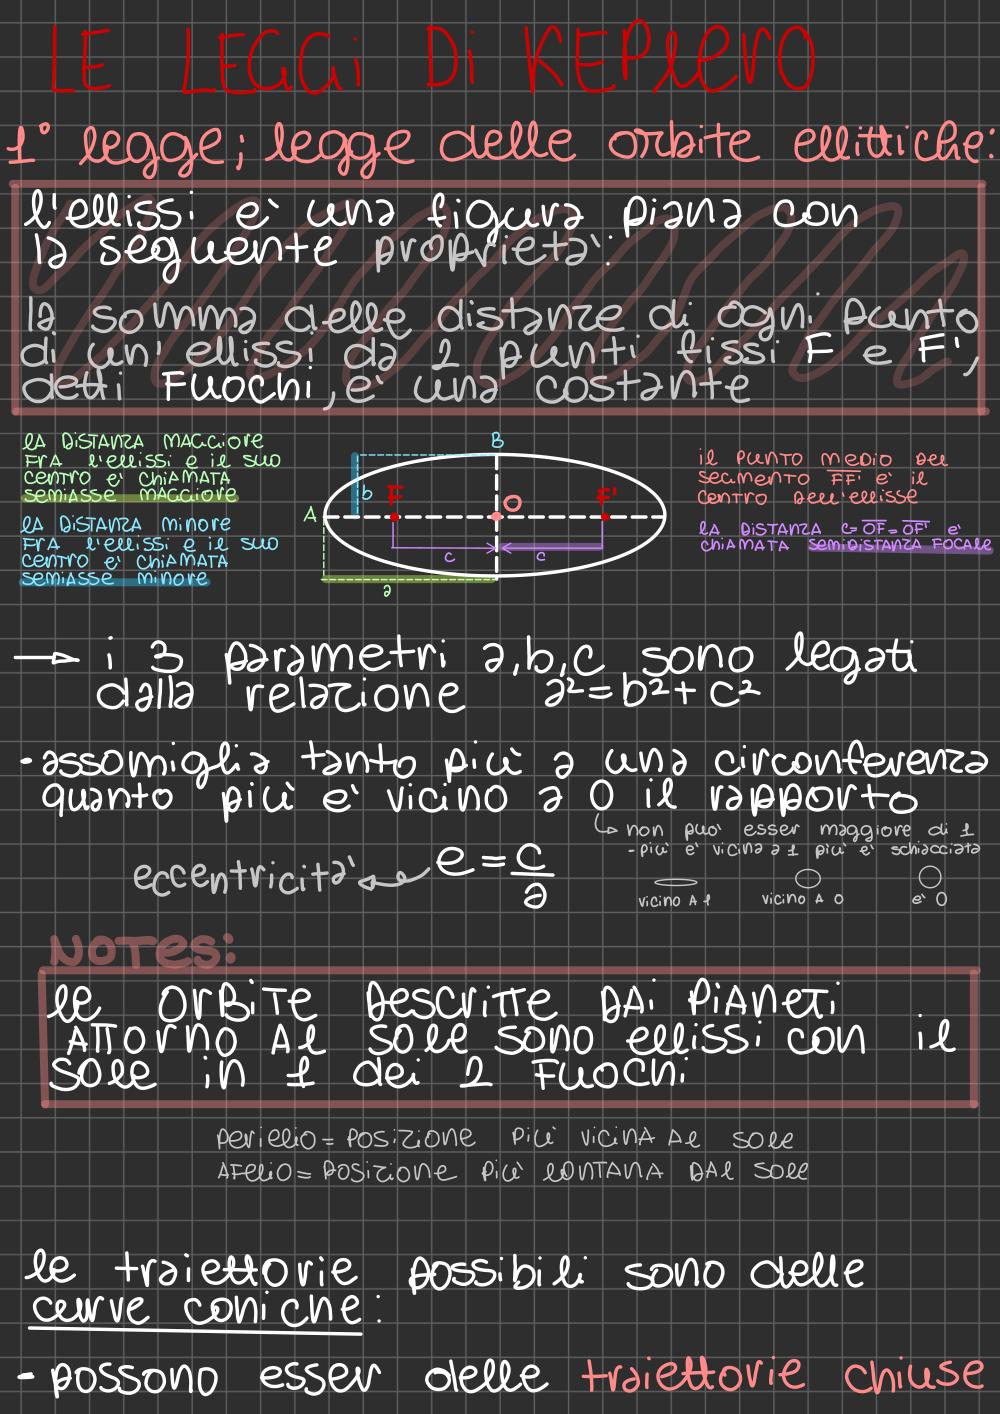 LE LEGGI DI KEPLERO
1° legge; legge delle orbite ellittiche:
l'ellissi e' una figura piana con
la seguente proprieta':
la somma delle distanze di ogni punto
di un' ellissi da 2 punti fissi F e F',
detti FUOCHI, e' una costante
LA DISTANZA MAGGIORE
FRA L'ELLISSI E IL SUO
CENTRO E' CHIAMATA
SEMIASSE MAGGIORE
LA DISTANZA MINORE
FRA L'ELLISSI E IL SUO
CENTRO E' CHIAMATA
SEMIASSE MINORE
B
b
F
O
F'
A
c
c
a
IL PUNTO MEDIO DEL
SEGMENTO FF' E' IL
CENTRO DELL'ELLISSE
LA DISTANZA C=OF=OF' E'
CHIAMATA SEMIDISTANZA FOCALE
→ i 3 parametri a,b,c sono legati
dalla relazione a²=b²+c²
- assomiglia tanto più a una circonferenza
quanto più e' vicino a 0 il rapporto
↳ non puo' esser maggiore di 1
- più e' vicina a 1 più e' schiacciata
eccentricita' e = c/a
vicino A 1 vicino A 0 e' 0
NOTES:
LE ORBITE DESCRITTE DAI PIANETI
ATTORNO AL SOLE SONO ELLISSI CON IL
SOLE IN 1 DEI 2 FUOCHI
PERIELIO = POSIZIONE PIÙ VICINA AL SOLE
AFELIO = POSIZIONE PIÙ LONTANA DAL SOLE
le traiettorie possibili sono delle
curve coniche:
- possono esser delle traiettorie chiuse